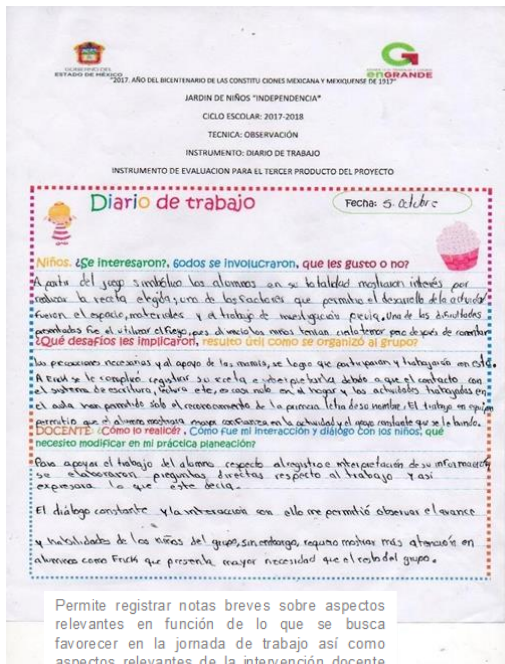 GOBIERNO DEL
ESTADO DE MÉXICO
enGRANDE
"2017. AÑO DEL BICENTENARIO DE LAS CONSTITU CIONES MEXICANA Y MEXIQUENSE DE 1917"
JARDIN DE NIÑOS "INDEPENDENCIA"
CICLO ESCOLAR: 2017-2018
TECNICA: OBSERVACIÓN
INSTRUMENTO: DIARIO DE TRABAJO
INSTRUMENTO DE EVALUACION PARA EL TERCER PRODUCTO DEL PROYECTO
Diario de trabajo
Fecha: 5. Octubre
Niños. ¿Se interesaron?, todos se involucraron, que les gusto o no?
A partir del juego simbólico los alumnos en su totalidad mostraron interés por
realizar la receta elegida; uno de los factores que permitio el desarrollo de la actividad
fueron el espacio, materiales y el trabajo de investigación previa. Una de las dificultades
presentadas fue el utilizar el fuego, pues al inicio los niños tenian cierto temor pero después de comentar
¿Qué desafíos les implicaron, resulto útil como se organizó al grupo?
las precauciones necesarias y el apoyo de las mamás, se logro que participaran y trabajaran en
A Erick se le complicó registrar su receta e interpretarla debido a que el contacto con
el sistema de escritura, lectura etc, es casi nulo en el hogar y las actividades trabajadas en
el aula han permitido solo el reconocimiento de la primera letra de su nombre. El trabajo en equipo
permitio que el alumno mostrara mayor confianza en la actividad y el apoyo constante que se le brindo.
DOCENTE: ¿Cómo lo realicé?, Cómo fue mi interacción y diálogo con los niños, qué
necesito modificar en mi práctica planeación?
Para apoyar el trabajo del alumno respecto al registro e interpretación de su información
se elaboraron preguntas directas respecto al trabajo y asi
expresara lo que este decia.
El diálogo constante y la interacción con ello me permitió observar el avance
y habilidades de los niños del grupo, sin embargo, requiero mostrar más atención en
alumnos como Erick que presenta mayor necesidad que el resto del grupo.
Permite registrar notas breves sobre aspectos
relevantes en función de lo que se busca
favorecer en la jornada de trabajo así como
aspectos relevantes de la intervención docente